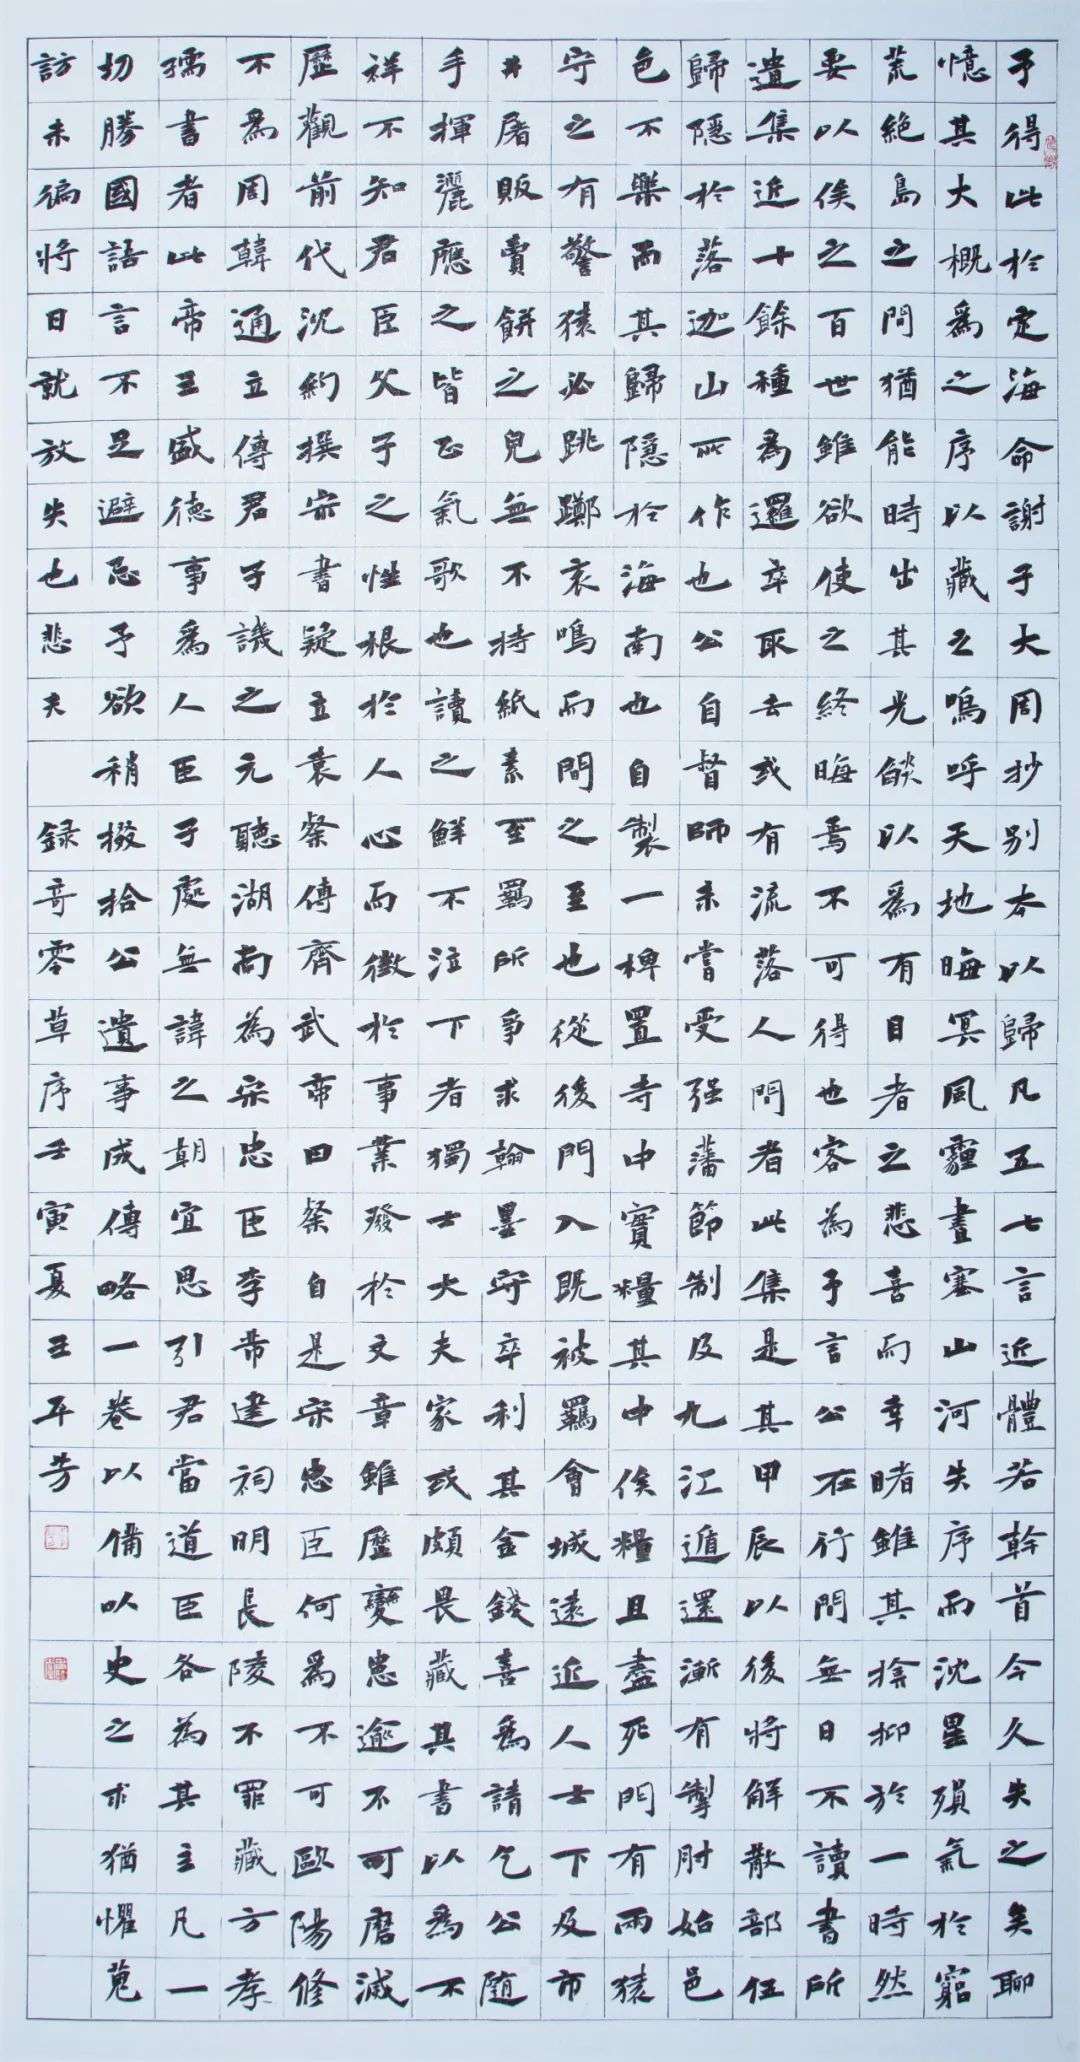 予得此於定海命謝子大周抄別本以歸凡五七言近體若幹首今久失之矣聊
憶其大概爲之序以藏之嗚呼天地晦冥風霾晝塞山河失序而沈星殞氣於窮
荒絕島之間猶能時出其光燄以爲有目者之悲喜而幸睹雖其揜抑於一時然
要以俟之百世雖欲使之終晦焉不可得也客為予言公在行間無日不讀書所
遺集近十餘種爲邏卒取去或有流落人間者此集是其甲辰以後將解散部伍
歸隱於落迦山所作也公自督師未嘗受强藩節制及九江遁還漸有掣肘始邑
色不樂而其歸隱於海南也自製一椑置寺中實糧其中俟糧且盡死門有兩猿
守之有警猿必跳躑哀鳴而間之至也從後門入既被羈會城遠近人士下及市
井屠販賣餅之兒無不持紙素至羈所爭求翰墨守卒利其金錢喜爲請乞公隨
手揮灑應之皆正氣歌也讀之鮮不泣下者獨士大夫家或頗畏藏其書以爲不
祥不知君臣父子之性根於人心而徵於事業發於文章雖歷變患逾不可磨滅
歷觀前代沈約撰宋書疑立袁粲傳齊武帝曰粲自是宋忠臣何爲不可歐陽修
不爲周韓通立傳君子譏之元聽湖南為宋忠臣李芾建祠明長陵不罪藏方孝
孺書者此帝王盛德事爲人臣子處無諱之朝宜思引君當道臣各為其主凡一
切勝國語言不足避忌予欲稍掇拾公遺事成傳略一卷以備以史之求猶懼蒐
訪未徧將日就放失也悲夫 録奇零草序壬寅夏王平芳